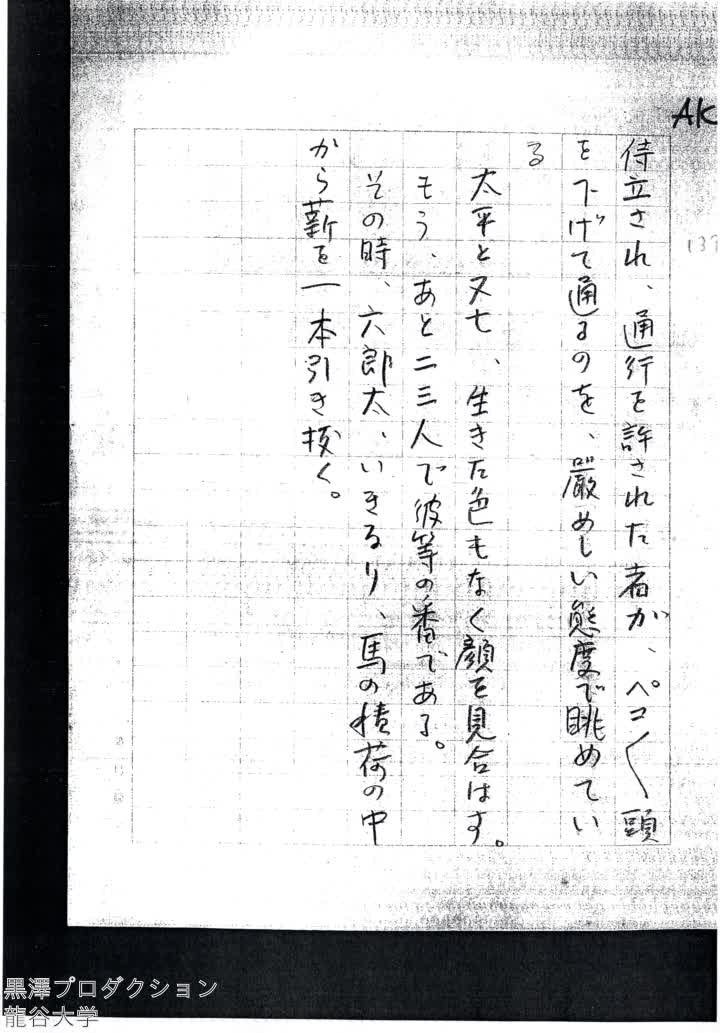 AK
137
侍立され、通行を許された者が、ペコ〳〵頭
を下げて通るのを、厳めしい態度で眺めてい
る
太平と又七、生きた色もなく顔を見合はす。
もう、あと二三人で彼等の番である。
その時、六郎太、いきなり、馬の積荷の中
から薪を一本引き抜く。
黒澤プロダクション
龍谷大学